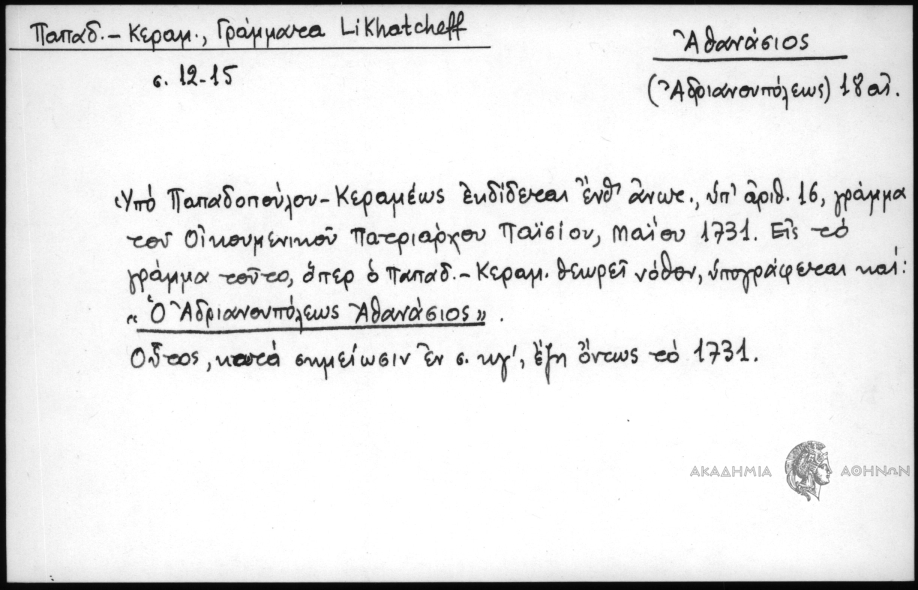 Παπαδ.-Κεραμ., Γράμματα Likhatcheff
σ. 12-15
Ἀθανάσιος
(Ἀδριανουπόλεως) 18 αἰ.
Ὑπό Παπαδοπούλου-Κεραμέως ἐκδίδεται ἔνθ' ἀνωτ., ὑπ' ἀριθ. 16, γράμμα
τοῦ Οἰκουμενικοῦ Πατριάρχου Παϊσίου, Μαΐου 1731. Εἰς τό
γράμμα τοῦτο, ὅπερ ὁ Παπαδ.-Κεραμ. θεωρεῖ νόθον, ὑπογράφεται καί:
«Ὁ Ἀδριανουπόλεως Ἀθανάσιος».
Οὗτος, κατά σημείωσιν ἐν σ. κγ', ἔζη ὄντως τό 1731.
ΑΚΑΔΗΜΙΑ ΑΘΗΝΩΝ